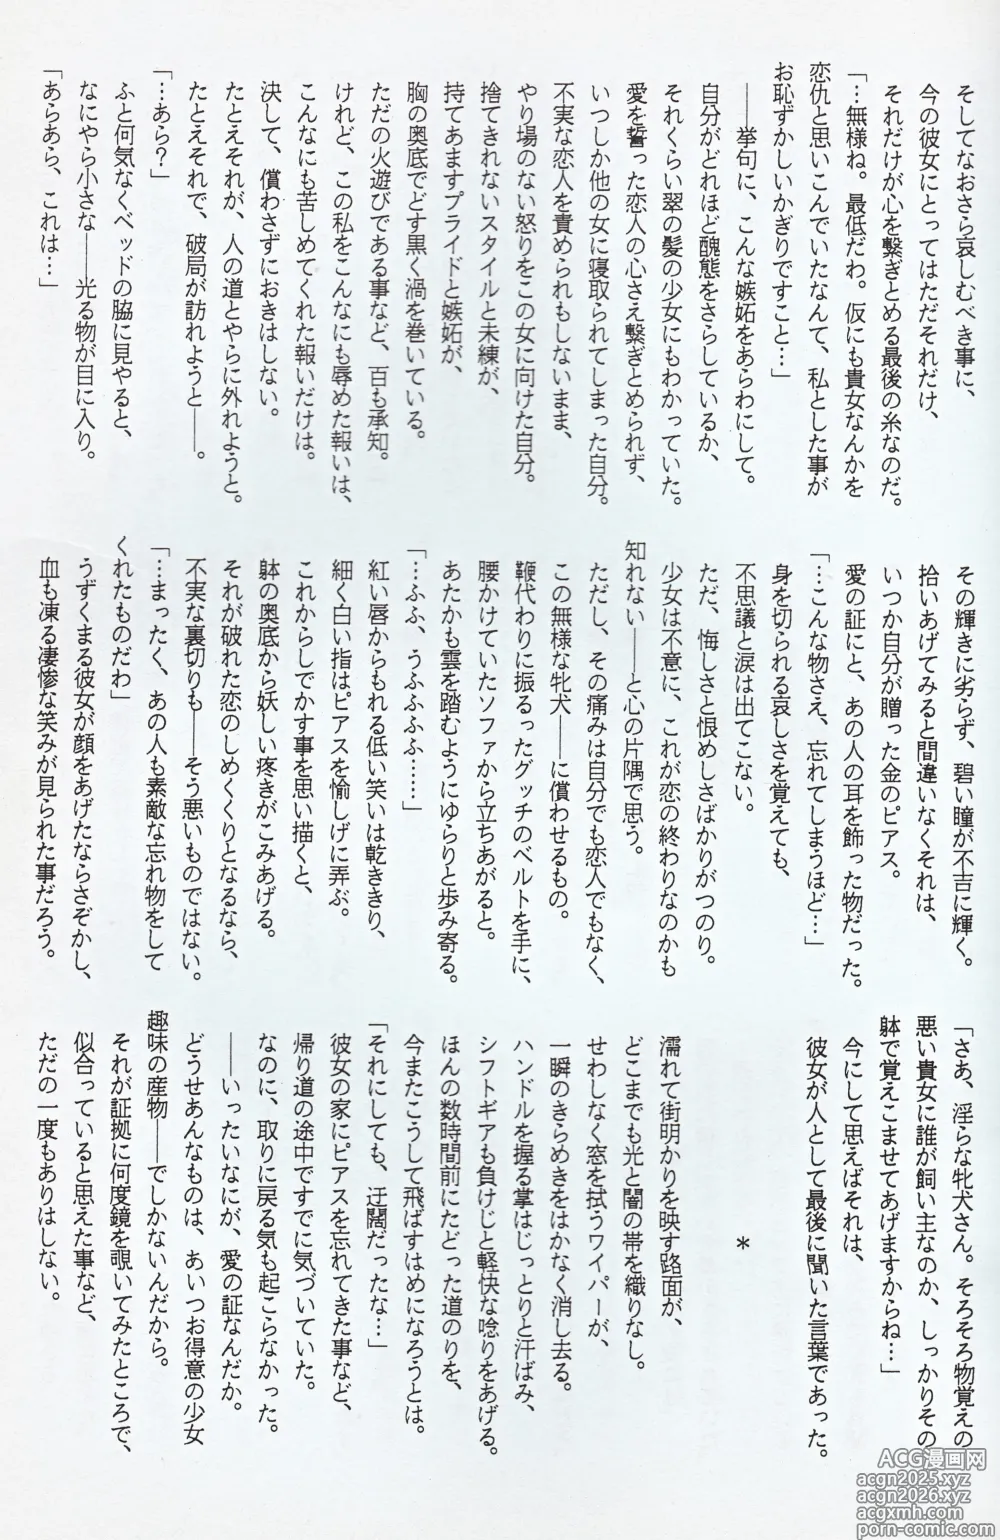 そしてなおさら哀しむべき事に、
今の彼女にとってはただそれだけ、
それだけが心を繋ぎとめる最後の糸なのだ。
「…無様ね。最低だわ。仮にも貴女なんかを
恋仇と思いこんでいたなんて、私とした事が
お恥ずかしいかぎりですこと…」
――挙句に、こんな嫉妬をあらわにして。
自分がどれほど醜態をさらしているか、
それくらい翠の髪の少女にもわかっていた。
愛を誓った恋人の心さえ繋ぎとめられず、
いつしか他の女に寝取られてしまった自分。
不実な恋人を責められもしないまま、
やり場のない怒りをこの女に向けた自分。
捨てきれないスタイルと未練が、
持てあますプライドと嫉妬が、
胸の奥底でどす黒く渦を巻いている。
ただの火遊びである事など、百も承知。
けれど、この私をこんなにも辱めた報いは、
こんなにも苦しめてくれた報いだけは。
決して、償わさずにおきはしない。
たとえそれが、人の道とやらに外れようと。
たとえそれで、破局が訪れようと――。
「…あら？」
ふと何気なくベッドの脇に見やると、
なにやら小さな――光る物が目に入り。
「あらあら、これは…」
その輝きに劣らず、碧い瞳が不吉に輝く。
拾いあげてみると間違いなくそれは、
いつか自分が贈った金のピアス。
愛の証にと、あの人の耳を飾った物だった。
「…こんな物さえ、忘れてしまうほど…」
身を切られる哀しさを覚えても、
不思議と涙は出てこない。
ただ、悔しさと恨めしさばかりがつのり。
少女は不意に、これが恋の終わりなのかも
知れない――と心の片隅で思う。
ただし、その痛みは自分でも恋人でもなく、
この無様な牝犬――に償わせるもの。
鞭代わりに振るったグッチのベルトを手に、
腰かけていたソファから立ちあがると。
あたかも雲を踏むようにゆらりと歩み寄る。
「…ふふ、うふふふふ……」
紅い唇からもれる低い笑いは乾ききり、
細く白い指はピアスを愉しげに弄ぶ。
これからしでかす事を思い描くと、
躰の奥底から妖しい疼きがこみあげる。
それが破れた恋のしめくくりとなるなら、
不実な裏切りも――そう悪いものではない。
「…まったく、あの人も素敵な忘れ物をして
くれたものだわ」
うずくまる彼女が顔をあげたならさぞかし、
血も凍る凄惨な笑みが見られた事だろう。
「さあ、淫らな牝犬さん。そろそろ物覚えの
悪い貴女に誰が飼い主なのか、しっかりその
躰で覚えこませてあげますからね…」
今にして思えばそれは、
彼女が人として最後に聞いた言葉であった。
＊
濡れて街明かりを映す路面が、
どこまでも光と闇の帯を織りなし。
せわしなく窓を拭うワイパーが、
一瞬のきらめきをはかなく消し去る。
ハンドルを握る掌はじっとりと汗ばみ、
シフトギアも負けじと軽快な唸りをあげる。
ほんの数時間前にたどった道のりを、
今またこうして飛ばすはめになろうとは。
「それにしても、迂闊だったな…」
彼女の家にピアスを忘れてきた事など、
帰り道の途中ですでに気づいていた。
なのに、取りに戻る気も起こらなかった。
――いったいなにが、愛の証なんだか。
どうせあんなものは、あいつお得意の少女
趣味の産物――でしかないんだから。
それが証拠に何度鏡を覗いてみたところで、
似合っていると思えた事など、
ただの一度もありはしない。
ACG漫画网
acgn2025.xyz
acgn2026.xyz
acgxmh.com
porn-comic.com